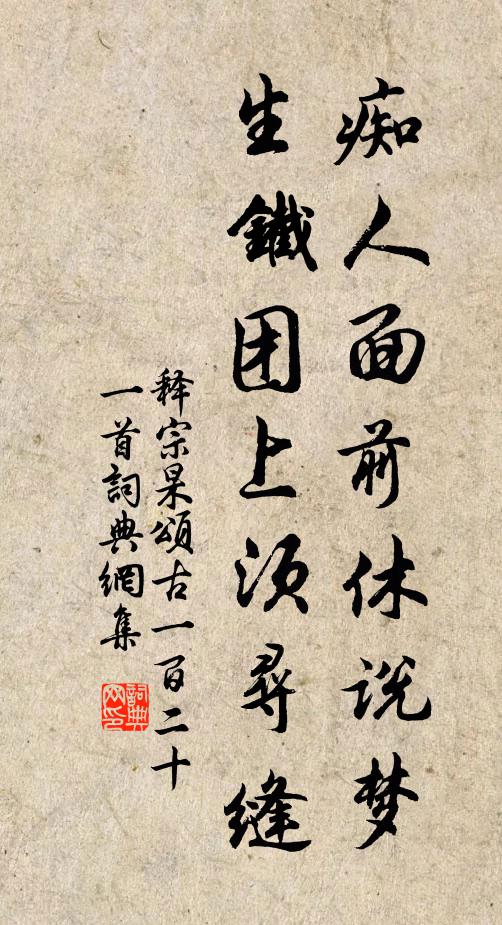 痴人面前休说梦
生鐵团上须尋縫
释宗杲頌古一百二十
一首詞典網集
詞典
网印